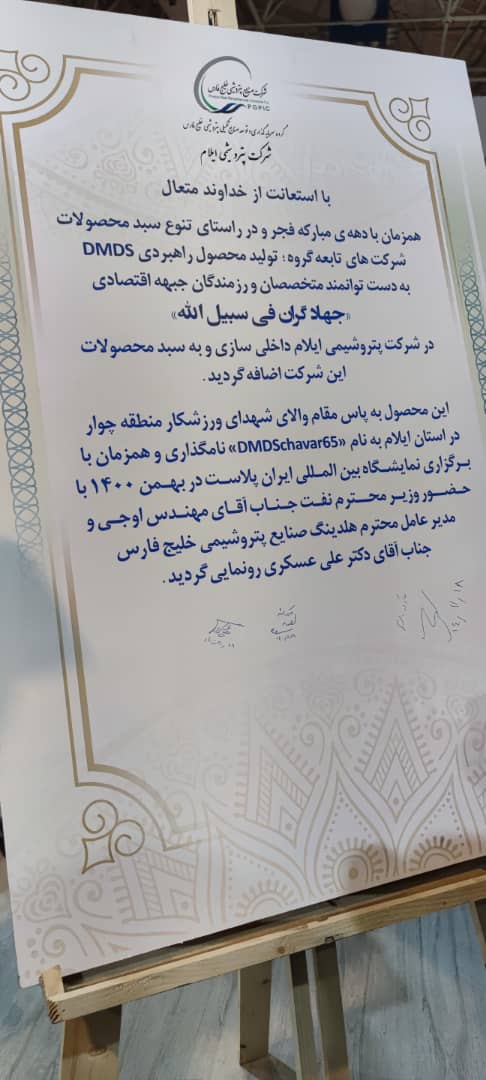 شرکت صنایع پتروشیمی خلیج فارس
P G P I C
گروه سرمایه گذاری و توسعه صنایع تکمیلی پتروشیمی خلیج فارس
شرکت پتروشیمی ایلام
با استعانت از خداوند متعال
همزمان با دهه ی مبارکه فجر و در راستای تنوع سبد محصولات
شرکت های تابعه گروه؛ تولید محصول راهبردی DMDS
به دست توانمند متخصصان و رزمندگان جبهه اقتصادی
«جهادگران فی سبیل الله»
در شرکت پتروشیمی ایلام داخلی سازی و به سبد محصولات
این شرکت اضافه گردید.
این محصول به پاس مقام والای شهدای ورزشکار منطقه چوار
در استان ایلام به نام «DMDSchavar65» نامگذاری و همزمان با
برگزاری نمایشگاه بین المللی ایران پلاست در بهمن ۱۴۰۰ با
حضور وزیر محترم نفت جناب آقای مهندس اوجی و
مدیر عامل محترم هلدینگ صنایع پتروشیمی خلیج فارس
جناب آقای دکتر علی عسکری رونمایی گردید.